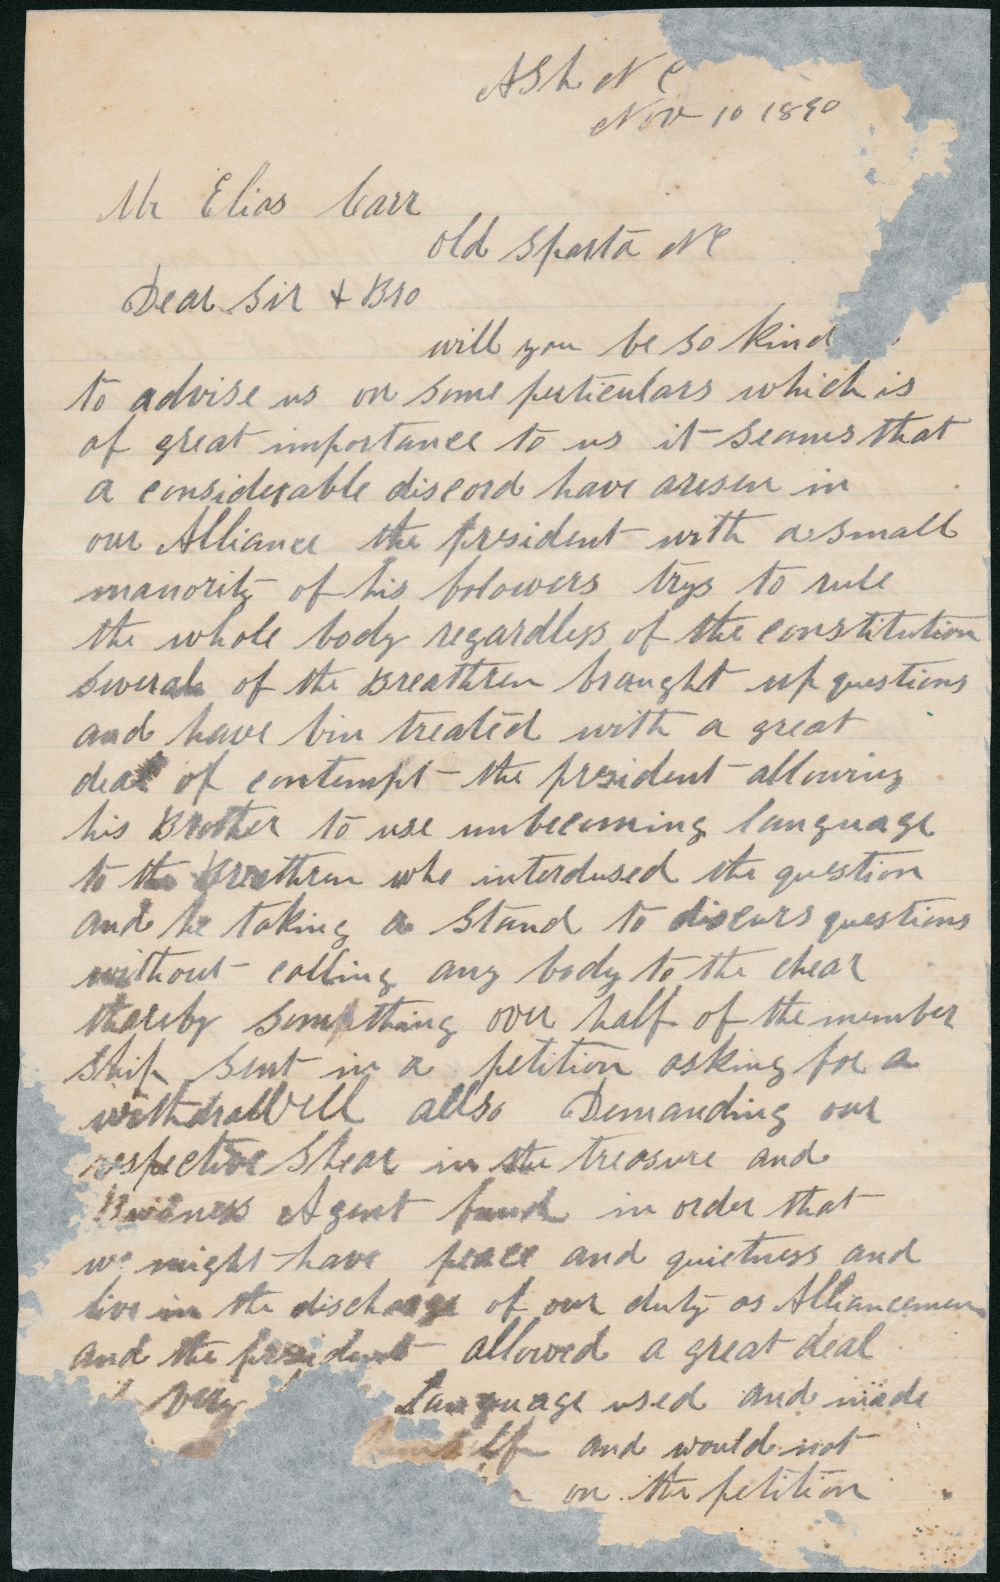 Ash N C
Nov 10 1890
Mr Elias Carr
Old Sparta N C
Dear Sir & Bro
will you be so kind
to advise us on some perticulars which is
of great importance to us it seams that
a considerable discord have aresen in
our Alliance the president with a small
manority of his folowers trys to rule
the whole body regardless of the constitution
several of the Breathren braught up questions
and have bin treated with a great
deal of contempt the president allowing
his Brother to use unbecoming language
to the Breathren who interdused the question
and he taking a stand to discurs questions
without calling any body to the chear
thereby something over half of the member
ship sent in a petition asking for a
withdrallvell allso Demanding our
respective Shear in the treasure and
Buisness Agent fund in order that
we might have peace and quietness and
live in the discharge of our duty as Alliancemen
and the president allowed a great deal
very language used and made
himself and would not
on the petition